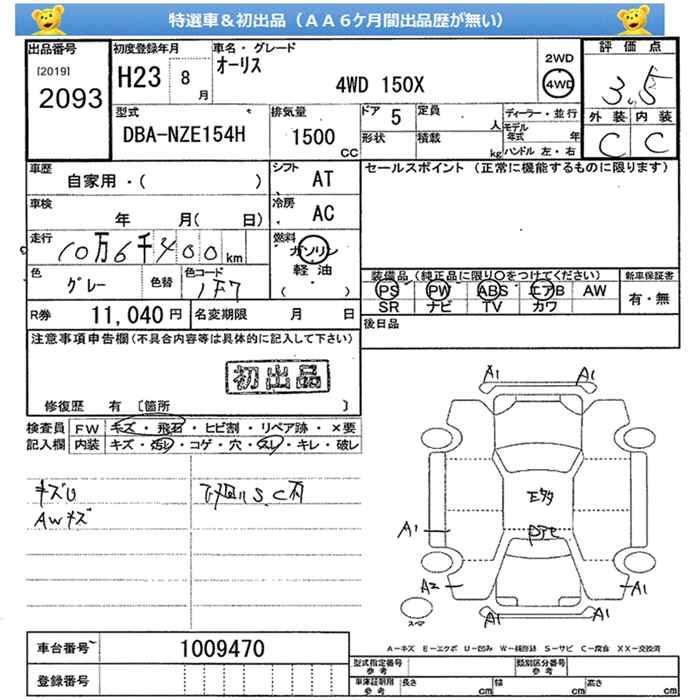 特選車＆初出品（ＡＡ６ケ月間出品歴が無い）
出品番号
[2019]
2093
初度登録年月
H23 8 月
車名・グレード
オーリス
4WD 150X
2WD
4WD
評価点
3.5
外装 内装
C C
型式
DBA-NZE154H
排気量
1500 CC
ドア 5
形状
定員 人
積載 kg
ディーラー・並行
モデル年式 年
ハンドル 左・右
車歴
自家用・( )
シフト AT
車検
年 月( 日)
冷房 AC
走行
10万6千400km
燃料
ガソリン
軽油
( )
色
グレー
色替
色コード
1F7
R券 11,040円
名変期限 月 日
セールスポイント（正常に機能するものに限ります）
装備品（純正品に限り○をつけてください）
PS PW ABS エアB AW
SR ナビ TV カワ
新車保証書
有・無
後日品
注意事項申告欄(不具合内容等は具体的に記入して下さい)
初出品
修復歴 有 〔箇所 〕
検査員記入欄
FW キズ・飛石・ヒビ割・リペア跡・×要
内装 キズ・汚レ・コゲ・穴・スレ・キレ・破レ
キズU
AWキズ
S.C有
A1 A1
A1
A2 A1
A1 A1
スペア
A－キズ E－エクボ U－凹み W－補修跡 S－サビ C－腐食 XX－交換済
車台番号 1009470
登録番号
型式指定番号 参考
類別区分番号 参考
車庫証明用 参考
長さ cm 幅 cm 高さ cm